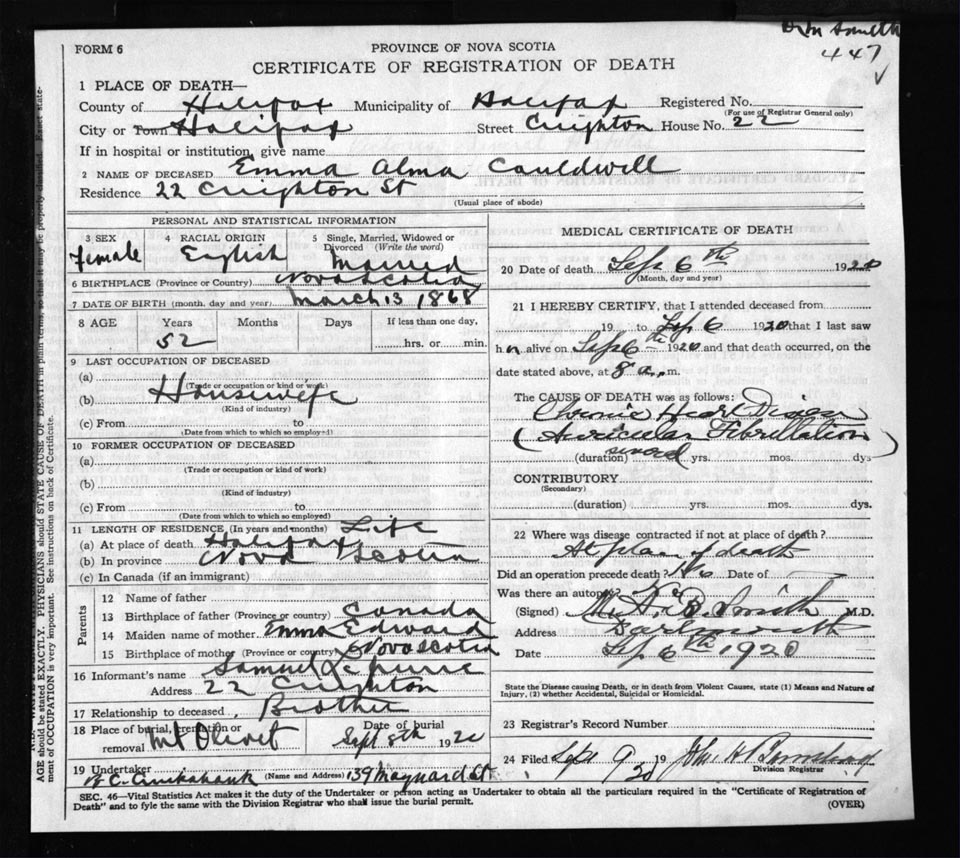 Smith
447
FORM 6
PROVINCE OF NOVA SCOTIA
CERTIFICATE OF REGISTRATION OF DEATH
1 PLACE OF DEATH—
County of Halifax Municipality of Halifax Registered No.
(For use of Registrar General only)
City or Town Halifax Street Creighton House No. 22
If in hospital or institution, give name
2 NAME OF DECEASED Emma Alma Cauldwell
Residence 22 Creighton St
(Usual place of abode)
PERSONAL AND STATISTICAL INFORMATION
3 SEX
Female
4 RACIAL ORIGIN
English
5 Single, Married, Widowed or Divorced (Write the word)
Married
6 BIRTHPLACE (Province or Country) Nova Scotia
7 DATE OF BIRTH (month, day and year) March 13 1868
8 AGE Years Months Days If less than one day,
52 hrs. or min.
9 LAST OCCUPATION OF DECEASED
(a)
(Trade or occupation or kind of work)
(b) Housewife
(Kind of industry)
(c) From to
(Date from which to which so employed)
10 FORMER OCCUPATION OF DECEASED
(a)
(Trade or occupation or kind of work)
(b)
(Kind of industry)
(c) From to
(Date from which to which so employed)
11 LENGTH OF RESIDENCE (In years and months) Life
(a) At place of death Halifax
(b) In province Nova Scotia
(c) In Canada (if an immigrant)
Parents
12 Name of father
13 Birthplace of father (Province or country) Canada
14 Maiden name of mother Emma Edward
15 Birthplace of mother (Province or country) Nova Scotia
16 Informant's name Samuel
Address 22 Creighton
17 Relationship to deceased Brother
18 Place of burial, cremation or removal Mt Olivet
Date of burial
Sept 8th 1920
19 Undertaker
(Name and Address) 139 Maynard St
MEDICAL CERTIFICATE OF DEATH
20 Date of death Sep 6th 1920
(Month, day and year)
21 I HEREBY CERTIFY, that I attended deceased from
19 to Sep 6 1920 that I last saw
h alive on Sep 6th 1920 and that death occurred, on the
date stated above, at 8 a. m.
The CAUSE OF DEATH was as follows:
Chronic Heart Disease
(Auricular Fibrillation)
(duration) several yrs. mos. dys.
CONTRIBUTORY
(Secondary)
(duration) yrs. mos. dys.
22 Where was disease contracted if not at place of death?
At place of death
Did an operation precede death? No Date of
Was there an autopsy? No
(Signed) Smith M.D.
Address Dartmouth
Date Sep 6th 1920
State the Disease causing Death, or in death from Violent Causes, state (1) Means and Nature of
Injury, (2) whether Accidental, Suicidal or Homicidal.
23 Registrar's Record Number
24 Filed Sept 9 1920 John H
Division Registrar
SEC. 46—Vital Statistics Act makes it the duty of the Undertaker or person acting as Undertaker to obtain all the particulars required in the "Certificate of Registration of
Death" and to fyle the same with the Division Registrar who shall issue the burial permit.
(OVER)
AGE should be stated EXACTLY. PHYSICIANS should STATE CAUSE OF DEATH in plain terms, so that it may be properly classified. Exact state-
ment of OCCUPATION is very important. See instructions on back of Certificate.